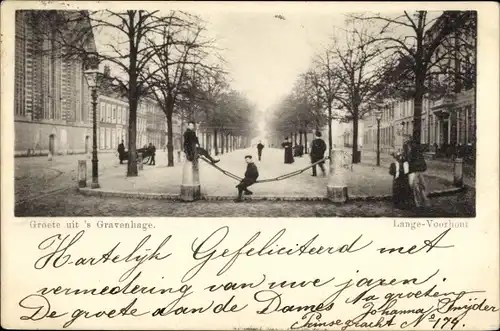 Groete uit 's Gravenhage.
Lange-Voorhout
Hartelijk Gefeliciteerd met
vermeerdering van uwe jaren.
De groete aan de Dames
Na groeten
Johanna Snijder
Prinsegracht No 176.